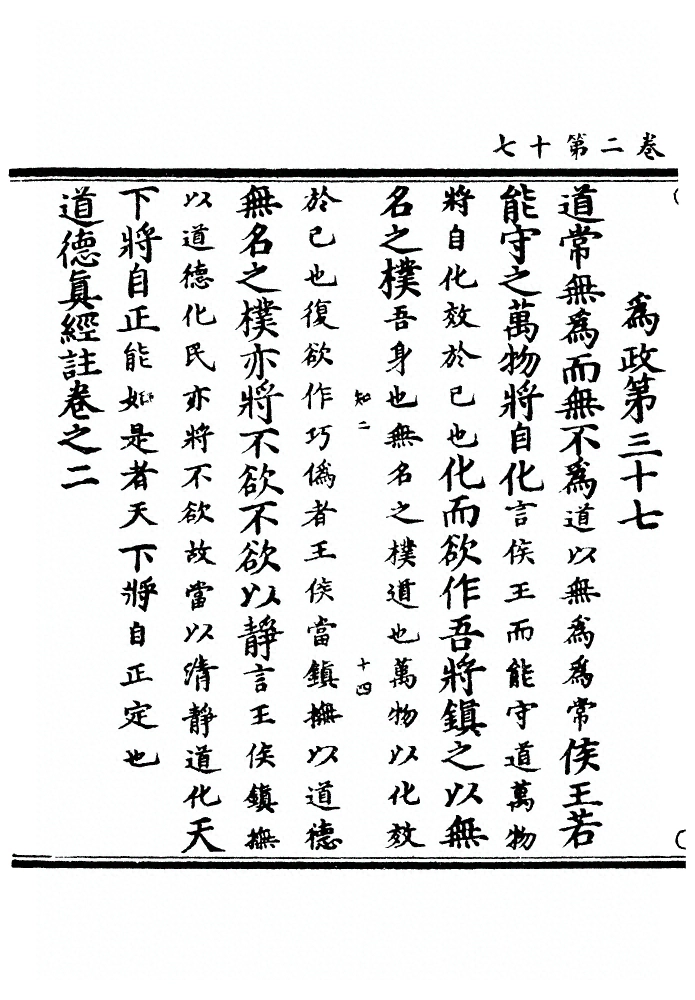 卷二第十七
爲政第三十七
道常無爲而無不爲道以無爲爲常侯王若
能守之萬物將自化言侯王而能守道萬物
將自化效於已也化而欲作吾將鎮之以無
名之樸吾身也無名之樸道也萬物以化效
知二
十四
於已也復欲作巧僞者王侯當鎮撫以道德
無名之樸亦將不欲不欲以靜言王侯鎮撫
以道德化民亦將不欲故當以清靜道化天
下將自正能如是者天下將自正定也
道德眞經註卷之二